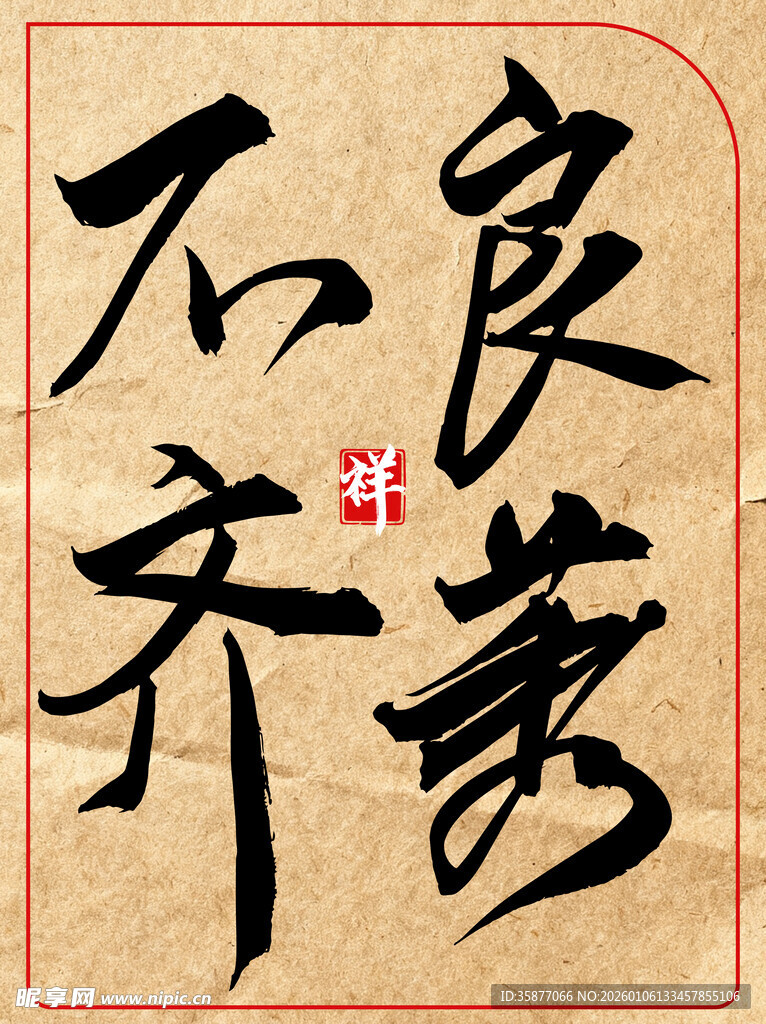 良莠
不齐
祥
昵享网 www.nipic.cn
ID:35877066 NO:20260106133457855106